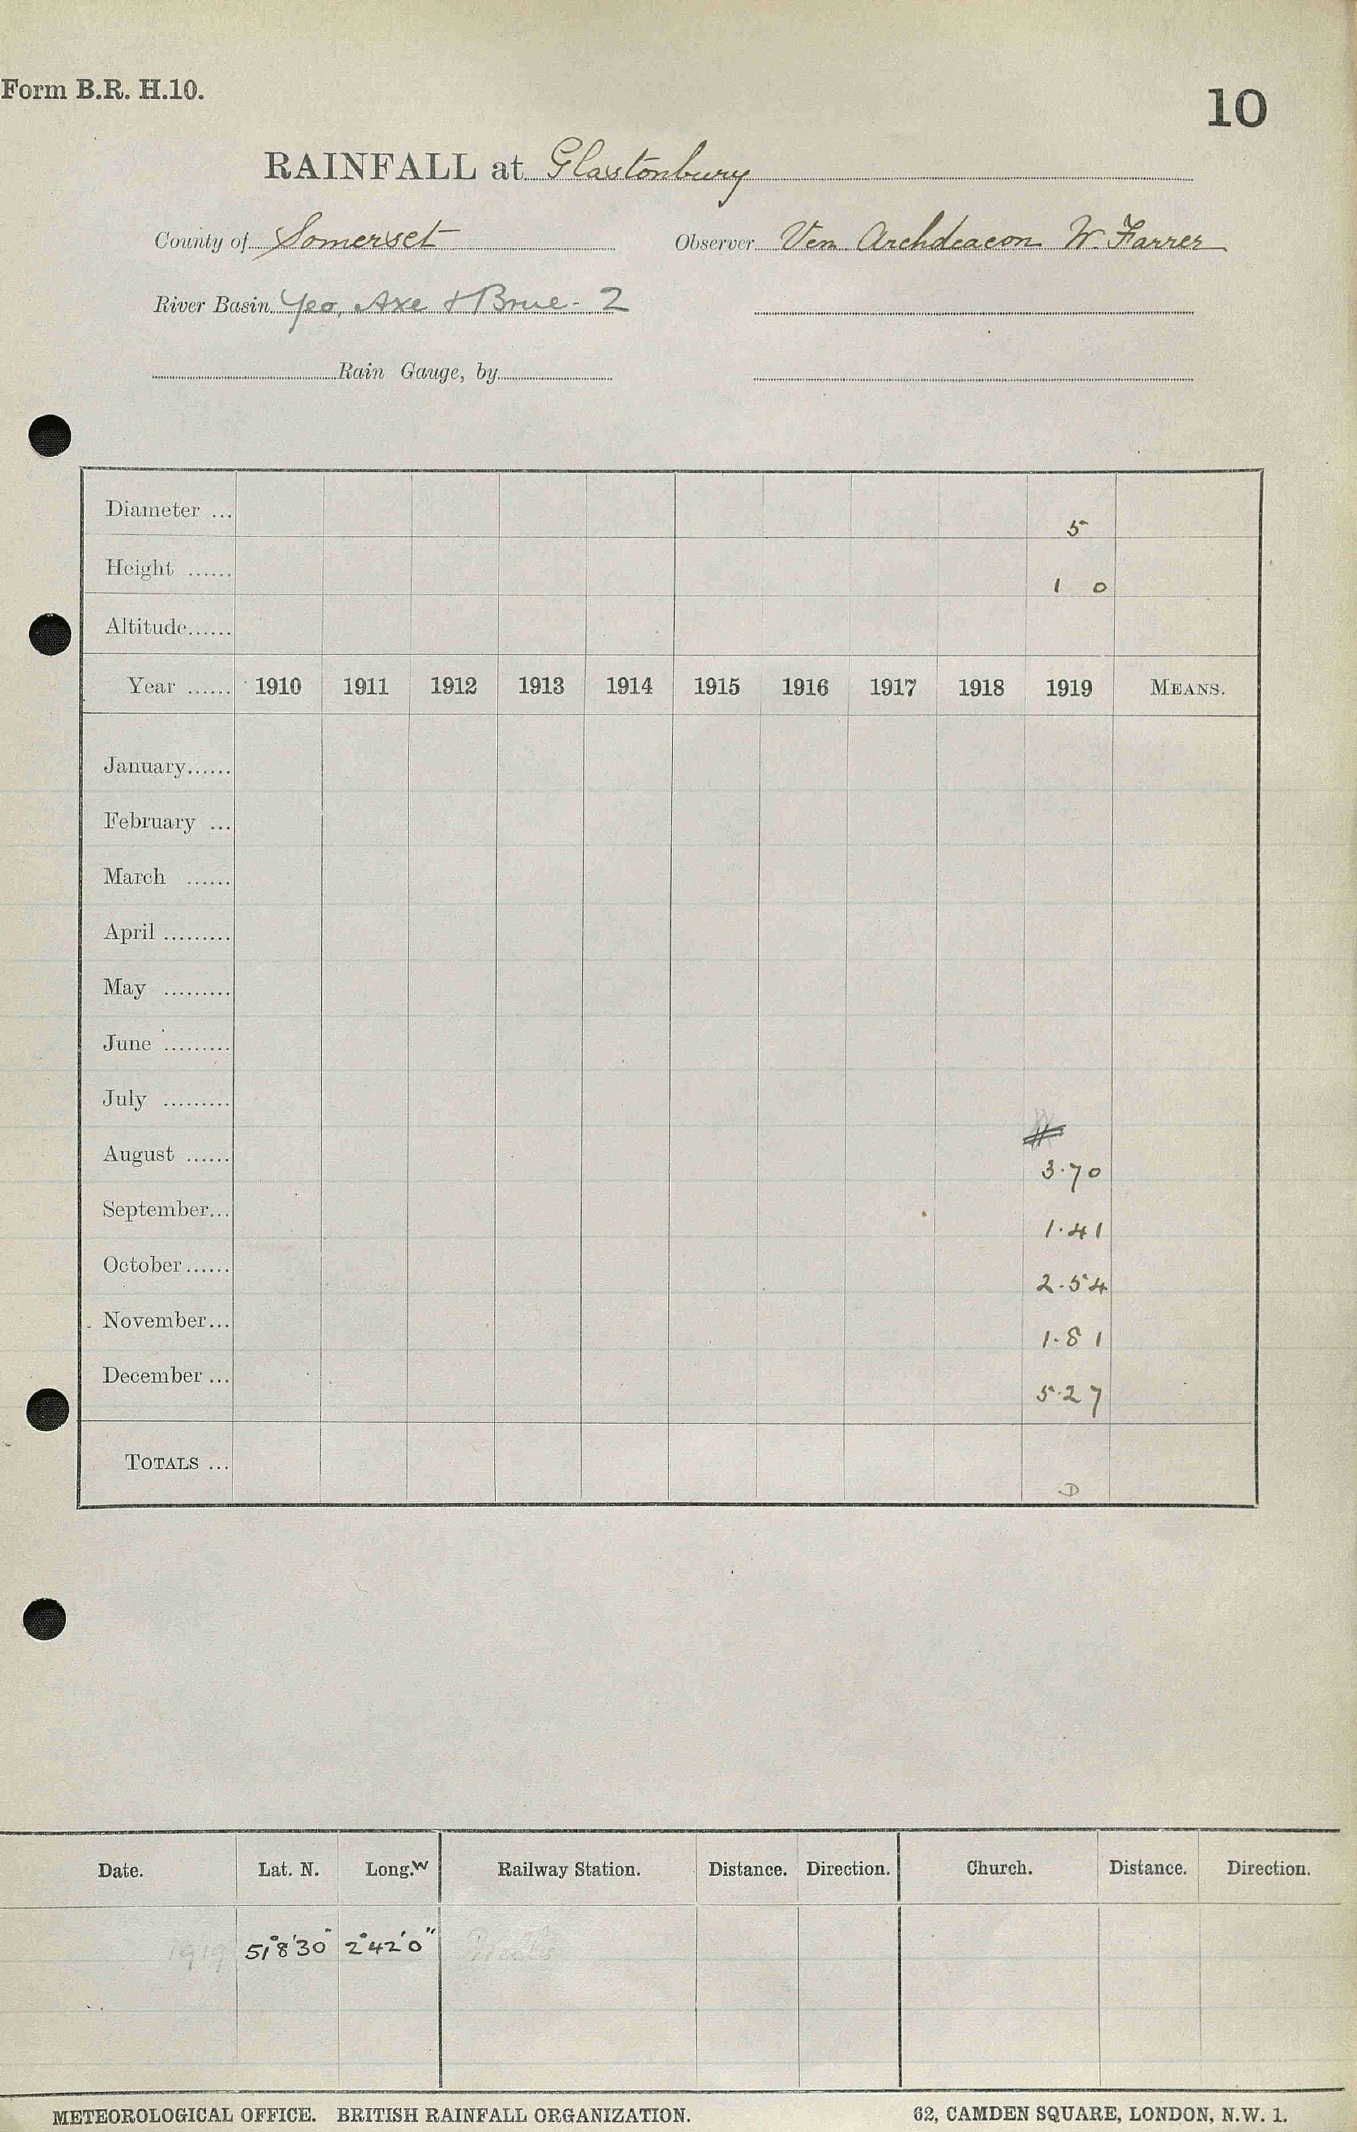 Form B.R. H.10.
10
RAINFALL at Glastonbury
County of Somerset Observer Ven Archdeacon W. Farrer
River Basin Yeo, Axe & Brue - 2
Rain Gauge, by
Diameter ... 5
Height ...... 1 0
Altitude......
Year ...... 1910 1911 1912 1913 1914 1915 1916 1917 1918 1919 MEANS.
January......
February ...
March ......
April .........
May .........
June .........
July .........
August ...... 3.70
September... 1.41
October...... 2.54
November... 1.81
December ... 5.27
TOTALS ... D
Date. Lat. N. Long. W Railway Station. Distance. Direction. Church. Distance. Direction.
1919 51°8'30" 2°42'0" Wells
METEOROLOGICAL OFFICE. BRITISH RAINFALL ORGANIZATION. 62, CAMDEN SQUARE, LONDON, N.W. 1.